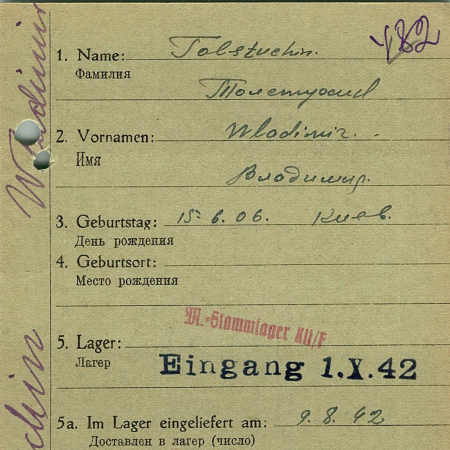 482
1. Name: Tolstuchin.
Фамилия
Толстухин
2. Vornamen: Wladimir.
Имя
Владимир.
3. Geburtstag: 15. 6. 06. Киев.
День рождения
4. Geburtsort:
Место рождения
M.-Stammlager XII/F
5. Lager:
Лагер
Eingang 1.X.42
5a. Im Lager eingeliefert am: 9. 8. 42
Доставлен в лагер (число)
Wladimir
chin